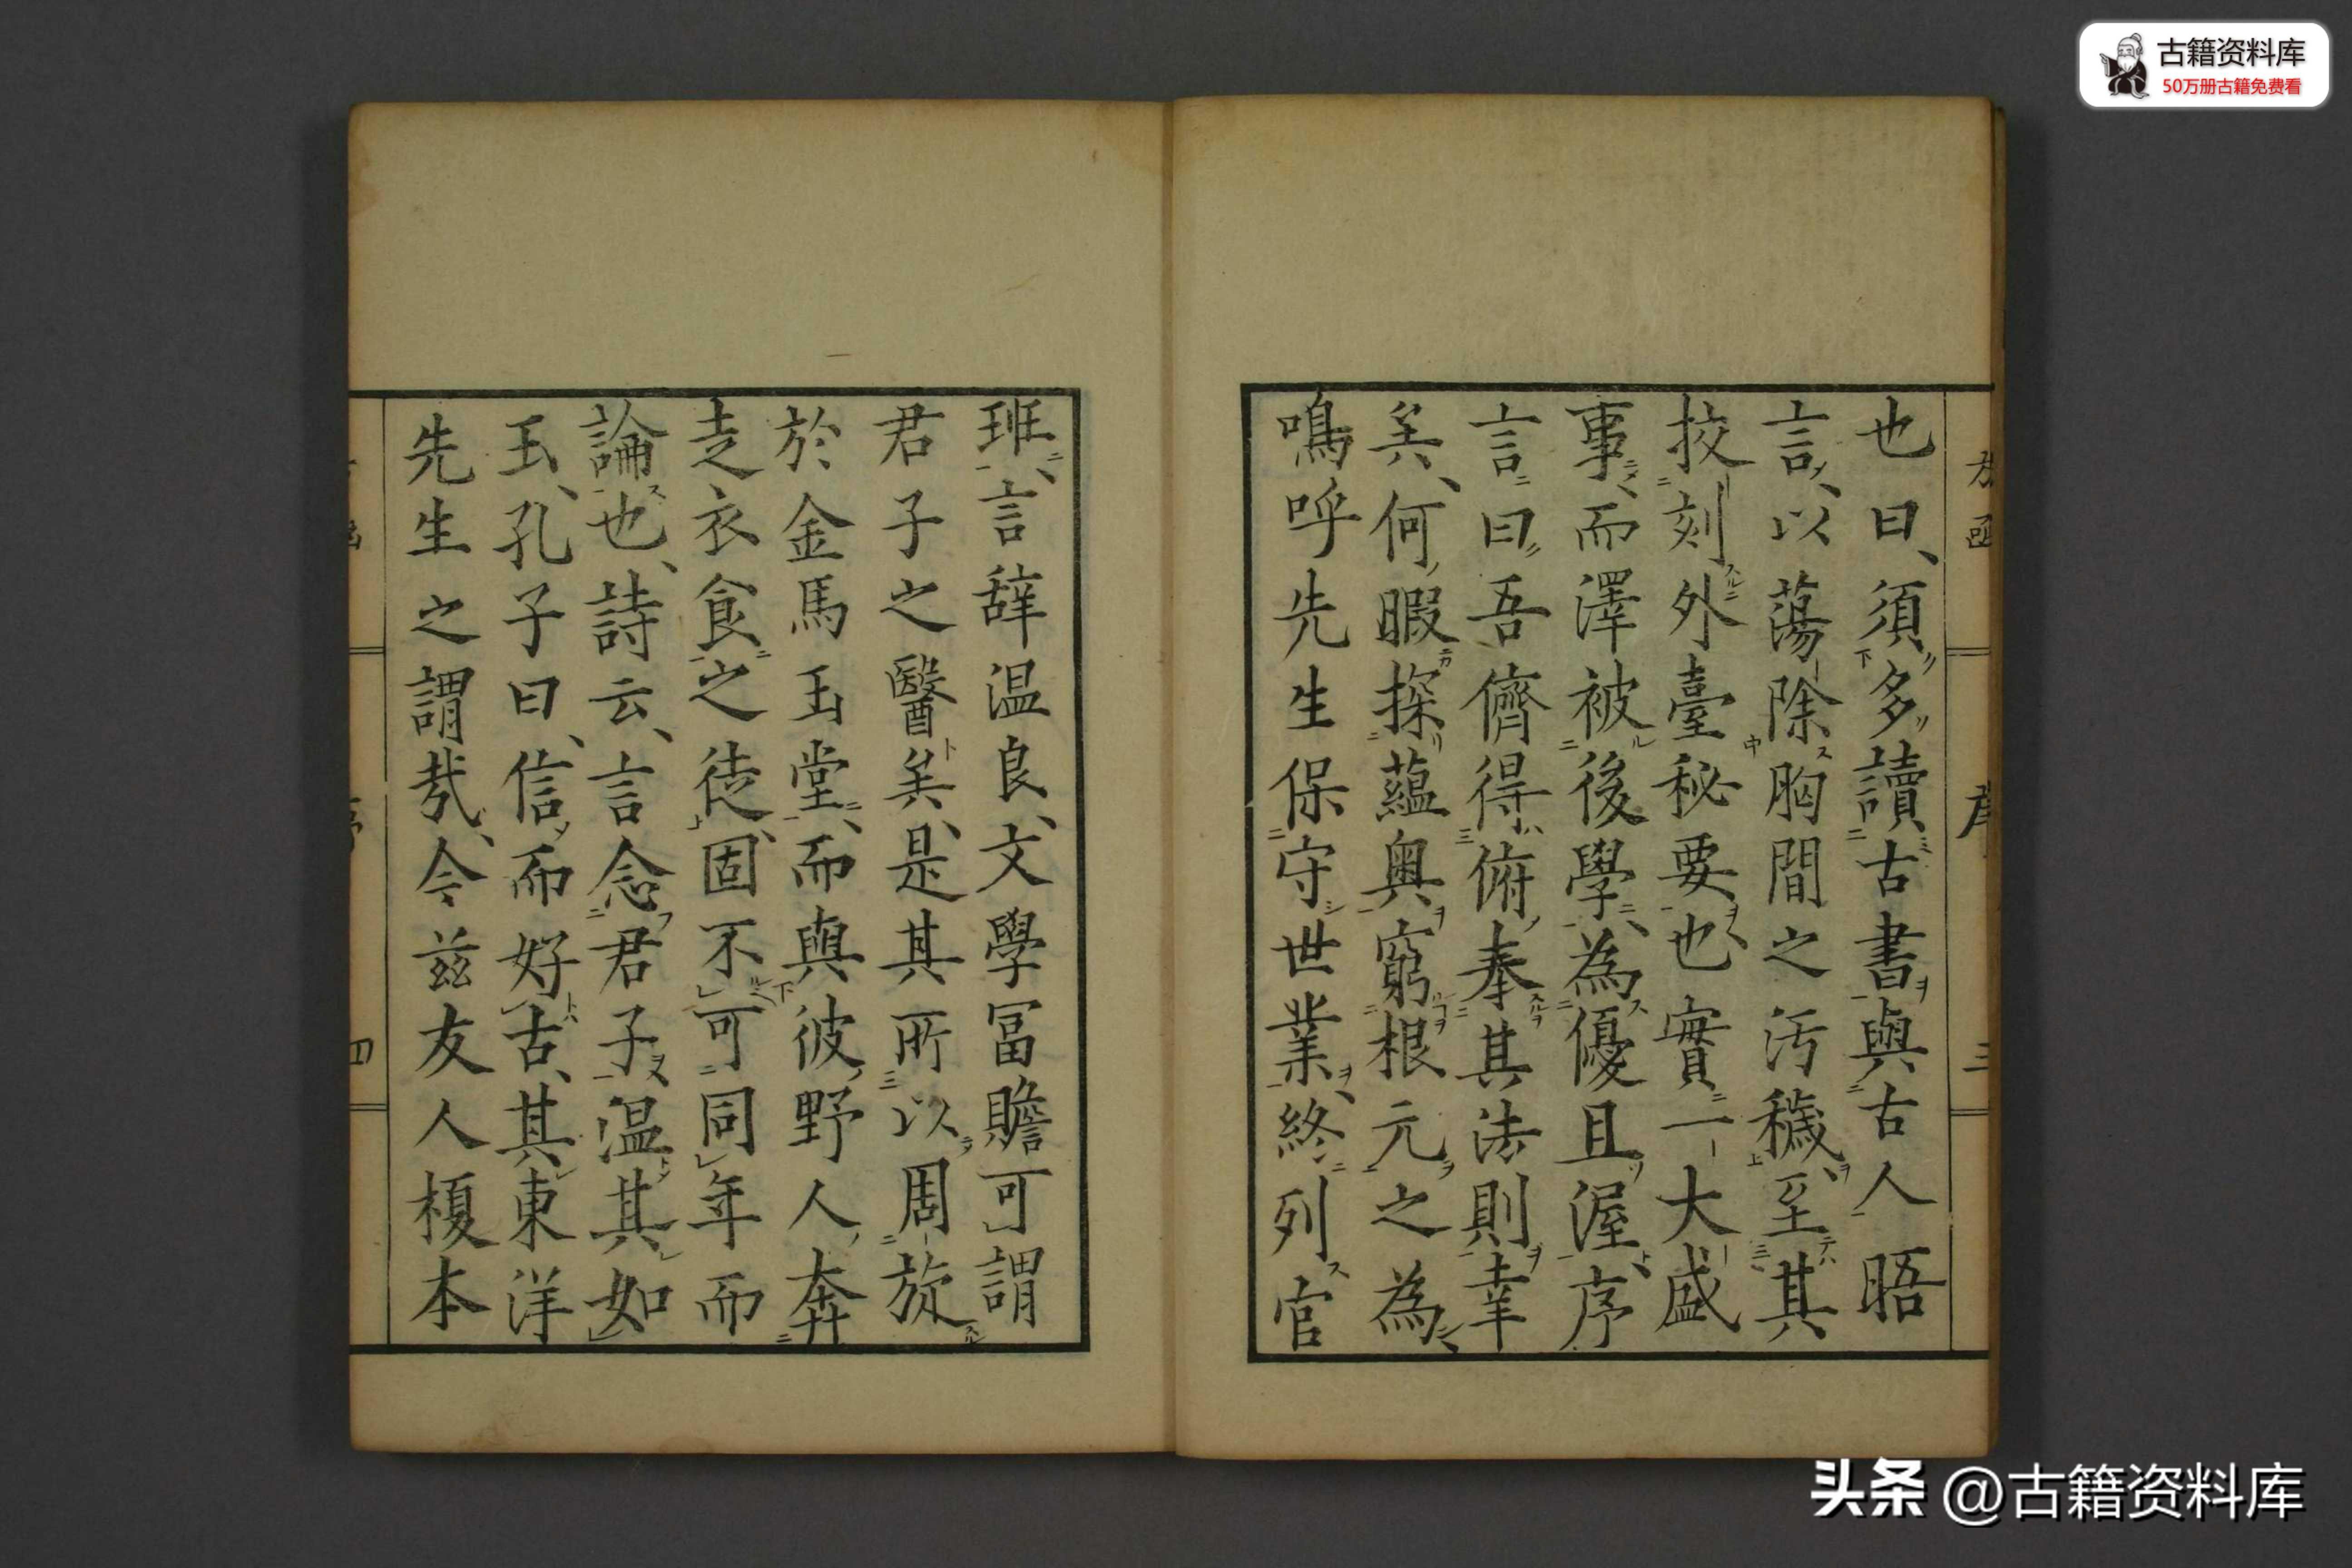 古籍资料库
50万册古籍免费看
也曰、須多讀古書與古人晤
言、以蕩除胸間之汚穢、至其
挍刻外臺秘要也實一大盛
事、而澤被後學、為優且渥、序
言曰吾儕得俯奉其法則幸
矣、何暇探蘊奧窮根元之為
嗚呼先生保守世業、終列官
序
三
班、言辞温良、文學冨贍可謂
君子之醫矣、是其所以周旋
於金馬玉堂、而與彼野人奔
走衣食之徒、固不可同年而
論也、詩云、言念君子温其如
玉、孔子曰、信而好古、其東洋
先生之謂哉、今茲友人榎本
四
头条 @古籍资料库